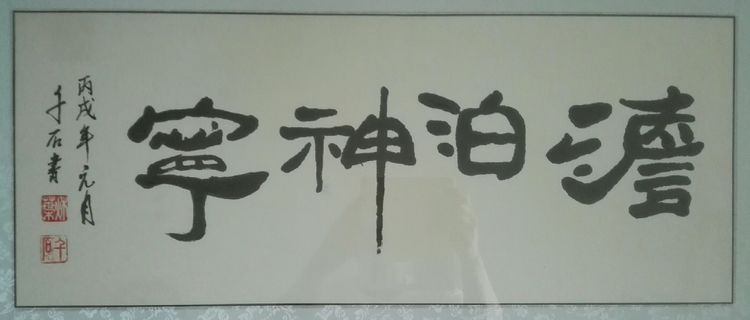 澹泊神寧
丙戌年元月
千石書
千石